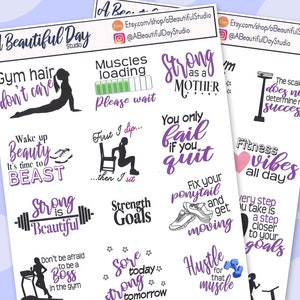 A Beautiful Day
Studio
Etsy.com/shop/aBeautifulStudio
@ABeautifulDayStudio
Etsy.com/shop/aBeautifulStudio
@ABeautifulDayStudio
Gym hair
don't care
Muscles
loading
Please wait
Strong
as a
MOTHER
The sca
does no
determine
succes
Wake up
Beauty
It's time to
BEAST
First I dip...
...then I sit
You only
fail
if you
quit
Fitness
vibes
all day
Strong
is
Beautiful
Strength
Goals
Fix your
ponytail
and
get
moving
very step
ou take is
a step
closer to
your
goals
Don't be afraid
to be a
Boss
in the
gym
Sore
today
strong
tomorrow
Hustle
for
that
muscle